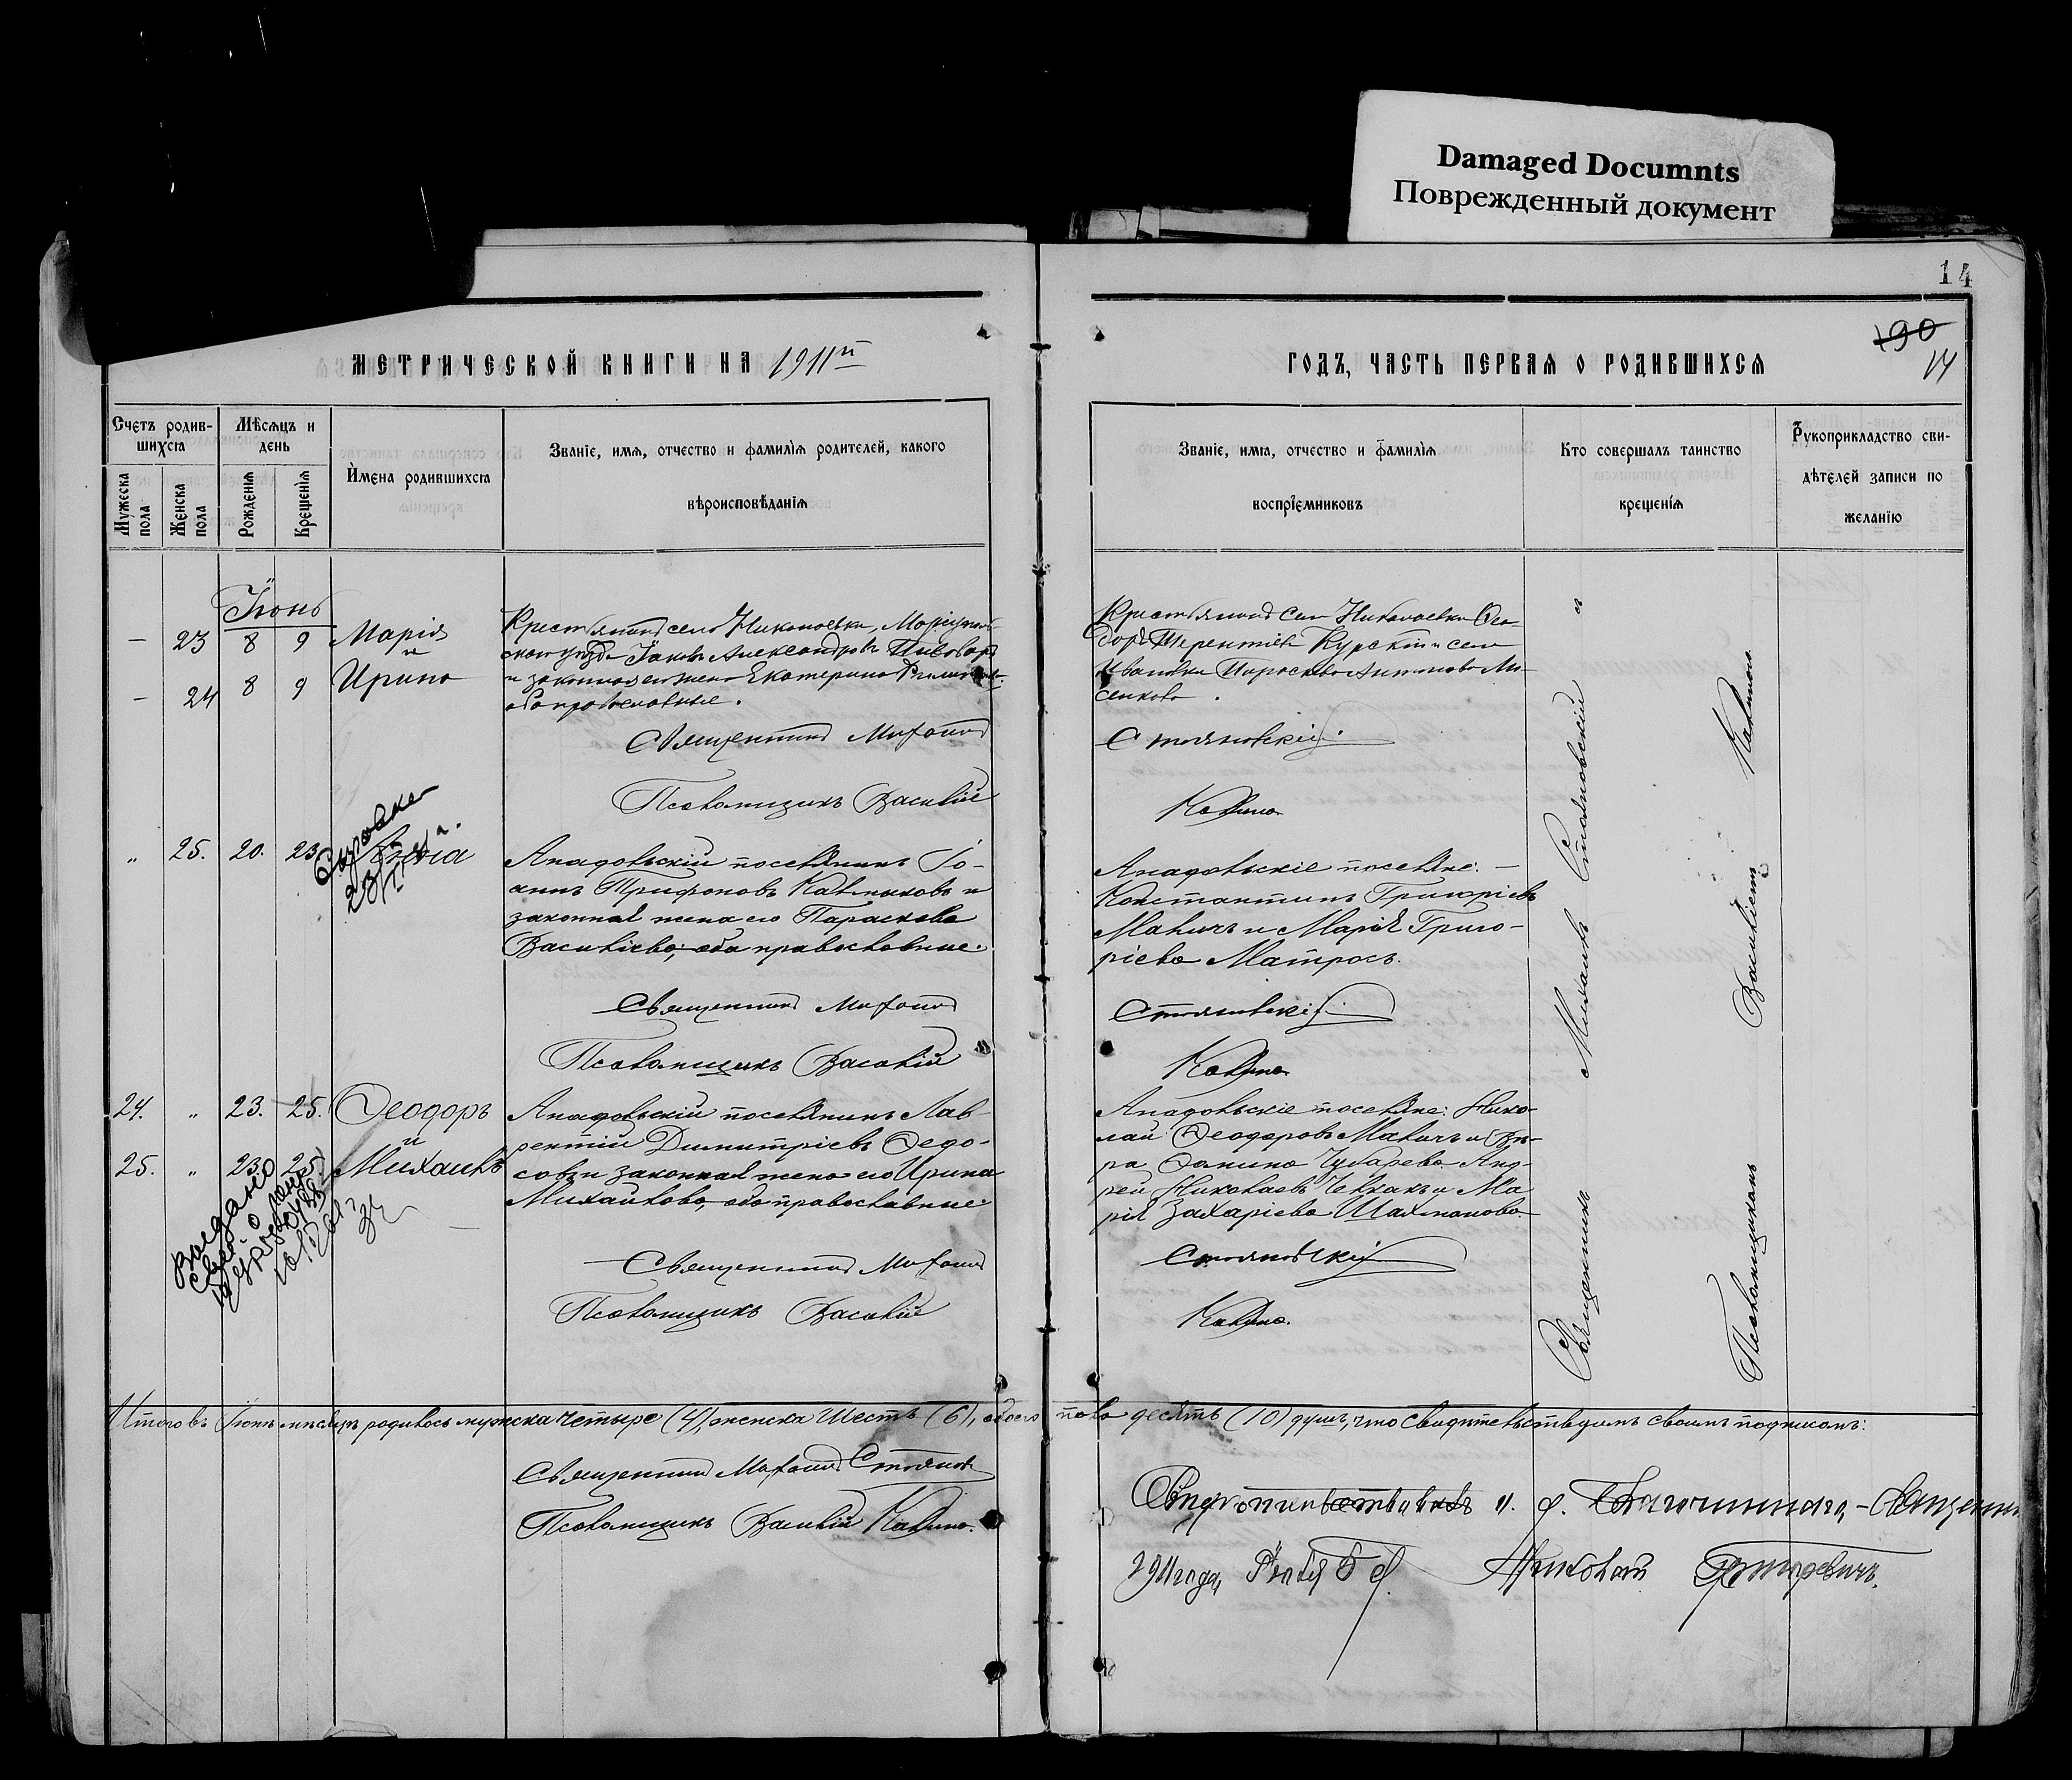 Damaged Documnts
Поврежденный документ
14
190
14
МЕТРИЧЕСКОЙ КНИГИ НА 1911й
ГОДЪ, ЧАСТЬ ПЕРВАЯ О РОДИВШИХСЯ
Счетъ родив-
шихся
Мужеска пола
Женска пола
Мѣсяцъ и
день
Рожденія
Крещенія
Имена родившихся
Званіе, имя, отчество и фамилія родителей, какого
вѣроисповѣданія
Званіе, имя, отчество и фамилія
воспріемниковъ
Кто совершалъ таинство
крещенія
Рукоприкладство сви-
дѣтелей записи по
желанію
Іюнь
— 23 8 9 Марія
и
— 24 8 9 Ирина
Крестьянинъ села Николаевки, Маріуполь-
скаго уѣзда Іаковъ Александровъ Пивоваръ
и законная его жена Екатерина
оба православные.
Священникъ Михаилъ
Псаломщикъ Василій
Крестьянинъ села Николаевки Ѳео-
доръ Терентіевъ Курскій и села
Ивановки Параскева Антонова Ли-
сенкова.
Стояновскій.
Калина
„ 25. 20. 23
Анадольскій поселянинъ Іо-
аннъ Трифоновъ Калмыковъ и
законная жена его Параскева
Василіева, оба православные.
Священникъ Михаилъ
Псаломщикъ Василій
Анадольскіе поселяне: —
Константинъ Григоріевъ
Маличъ и Марія Григо-
ріева Матросъ.
Стояновскій.
Калина
24. „ 23. 25. Ѳеодоръ
и
25. „ 23. 25. Михаилъ
Выдано
Анадольскій поселянинъ Лав-
рентій Димитріевъ Ѳедо-
совъ и законная жена его Ирина
Михайлова, оба православные.
Священникъ Михаилъ
Псаломщикъ Василій
Анадольскіе поселяне: Нико-
лай Ѳеодоровъ Маличъ и Вѣ-
ра Чубарева Анд-
рей Николаевъ и Ма
рія Захаріева Шахманова
Стояновскій
Калина.
Священникъ Михаилъ Стояновскій и
Псаломщикъ Василій Калина
Итого въ Іюнѣ мѣсяцѣ родилось мужска четыре (4), женска шесть (6), обоего пола десять (10) душъ, что свидѣтельствуемъ своимъ подписомъ:
Священникъ Михаилъ Стоянов
Псаломщикъ Василій Калина.
и. д. Благочиннаго, — Священни
1911 года, Іюля 5 д. Николай